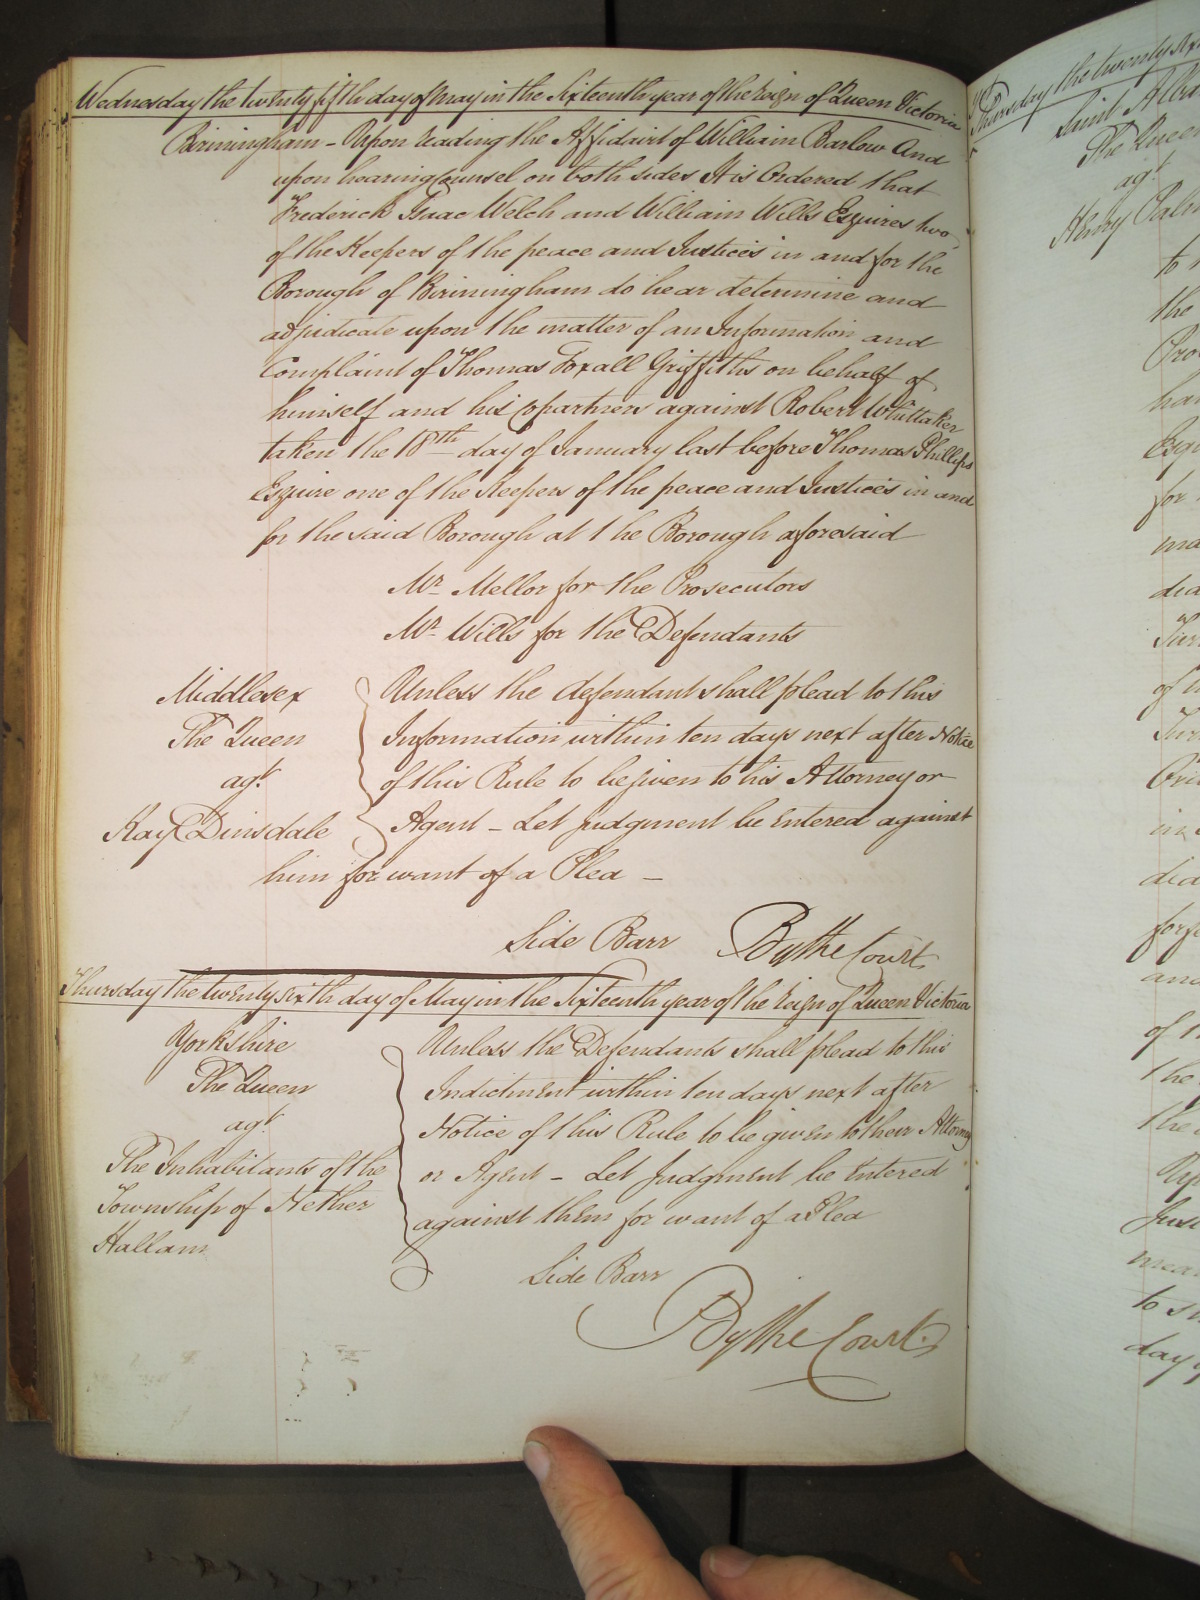 Wednesday the twenty fifth day of May in the Sixteenth year of the reign of Queen Victoria
Birmingham – Upon reading the Affidavit of William Barlow And
upon hearing Counsel on both sides It is Ordered that
Frederick Isaac Welch and William Wills Esquires two
of the Keepers of the peace and Justices in and for the
Borough of Birmingham do hear determine and
adjudicate upon the matter of an Information and
Complaint of Thomas Foxall Griffiths on behalf of
himself and his copartners against Robert Whittaker
taken the 18th day of January last before Thomas Phillips
Esquire one of the Keepers of the peace and Justices in and
for the said Borough at the Borough aforesaid
Mr. Mellor for the Prosecutors
Mr. Wills for the Defendants
Middlesex
The Queen
agt.
Kay Dinsdale
Unless the defendant shall plead to this
Information within ten days next after Notice
of this Rule to be given to his Attorney or
Agent – Let judgment be Entered against
him for want of a Plea –
Side Barr By the Court
Thursday the twenty sixth day of May in the Sixteenth year of the reign of Queen Victoria
Yorkshire
The Queen
agt.
The Inhabitants of the
Township of Nether
Hallam
Unless the Defendants shall plead to this
Indictment within ten days next after
Notice of this Rule to be given to their Attorney
or Agent – Let Judgment be Entered
against them for want of a Plea
Side Barr
By the Court
Thursday the twenty six
Saint Alba
The Quee
agt.
Henry Palm
the
Pro
Esq
for
ma
of
in
dia
and
of
the
the
to
day